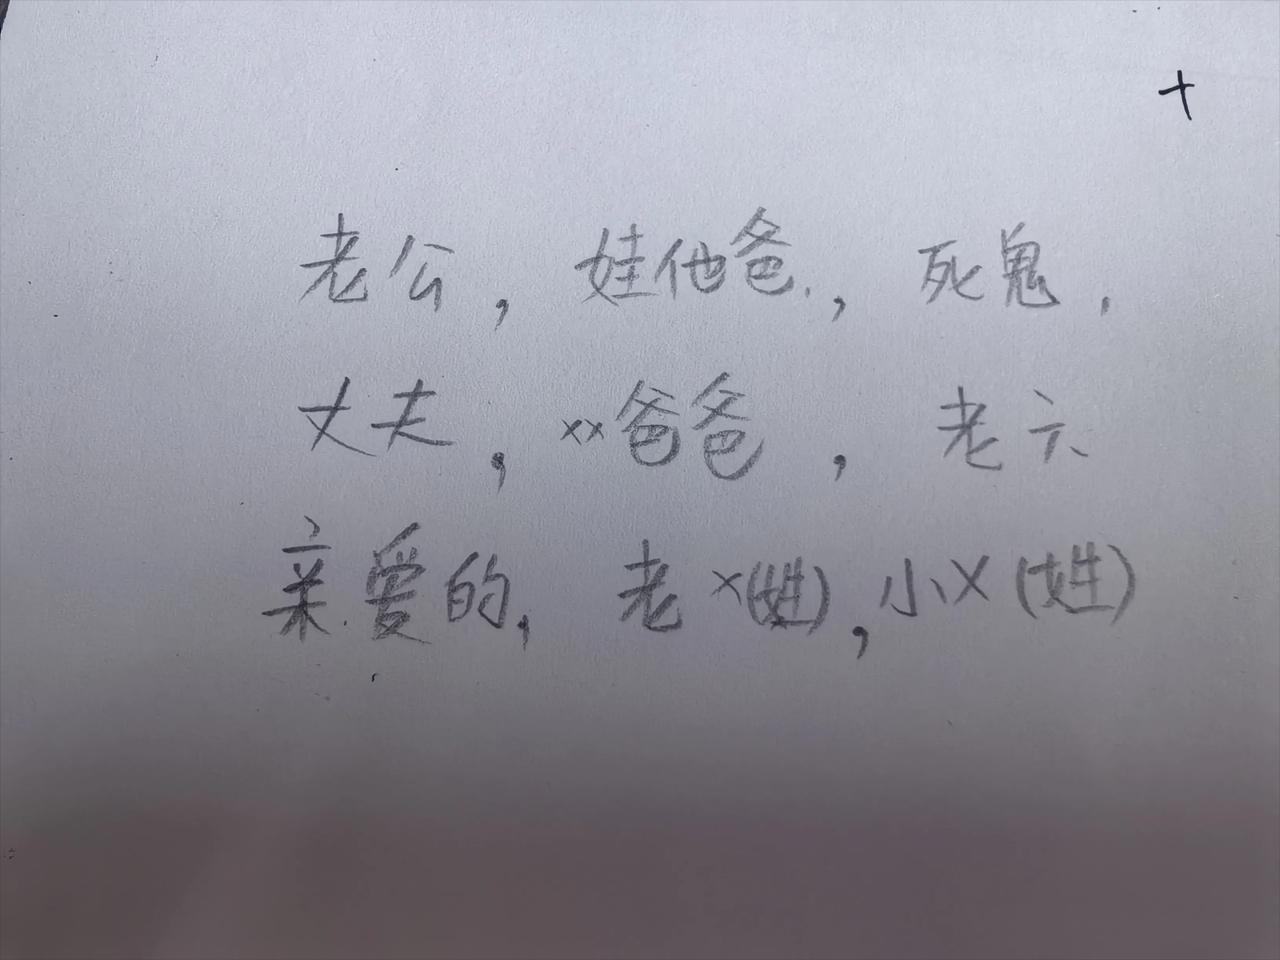 十
老公，娃他爸.，死鬼，
丈夫，xx爸爸，老六
亲爱的，老x(姓)，小X(姓)